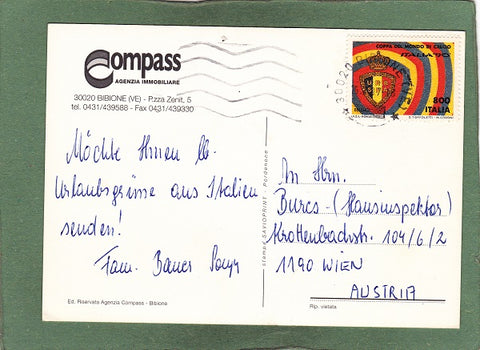 Compass
AGENZIA IMMOBILIARE
30020 BIBIONE (VE) - P.zza Zenit, 5
tel. 0431/439588 - Fax 0431/439330
COPPA DEL MONDO DI CALCIO
ITALIA 90
800
ITALIA
30020 BIBIONE (VE)
Möchte Ihnen lb.
Urlaubsgrüsse aus Italien
senden!
Fam. Bauer
Ed. Riservata Agenzia Compass - Bibione
stampa SAVIOPRINT - Pordenone
An Hrn.
Burcs (Hausinspektor)
Krottenbachstr. 104/6/2
1190 WIEN
AUSTRIA
Rip. vietata